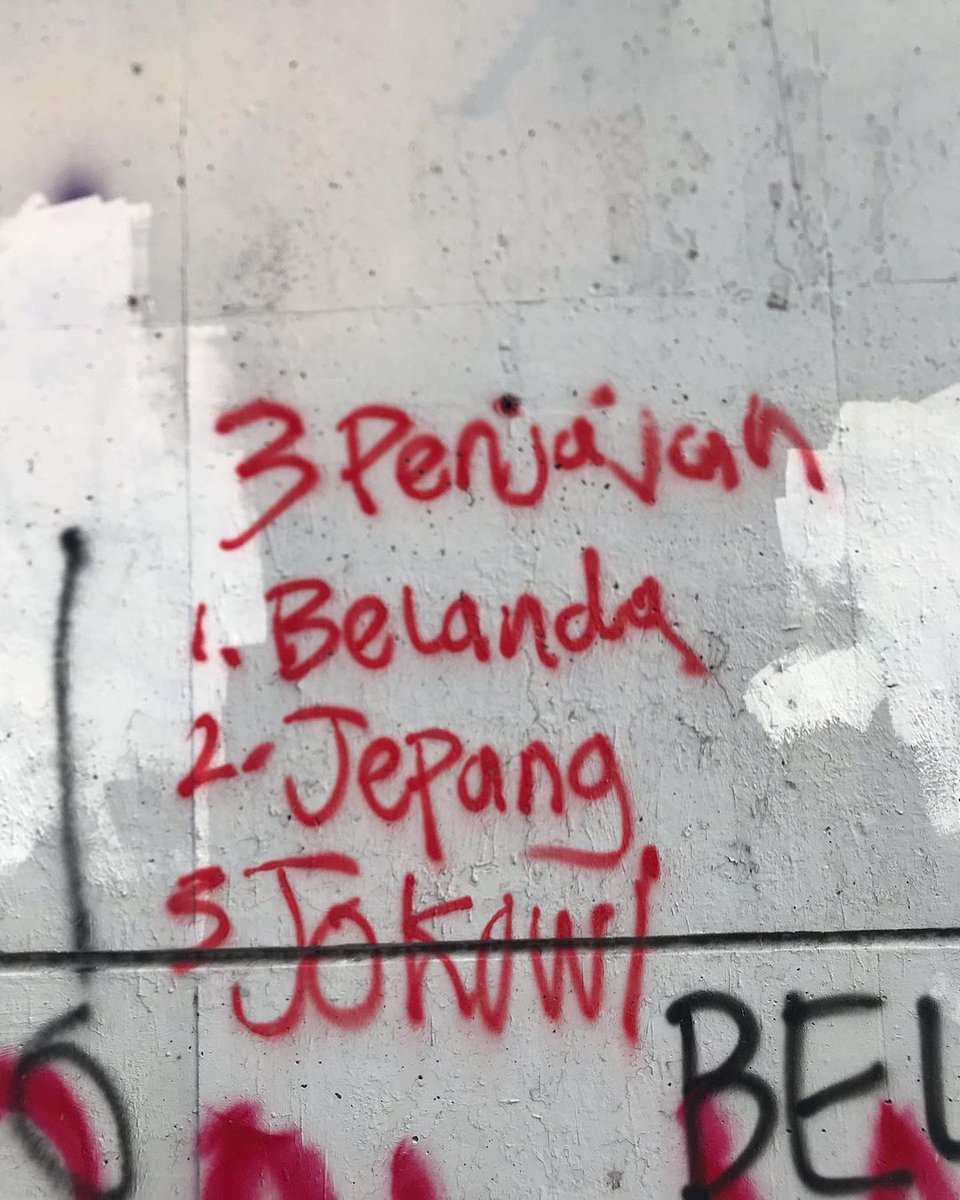 3 Penjajah
1. Belanda
2. Jepang
3. JOKOWI
BEL